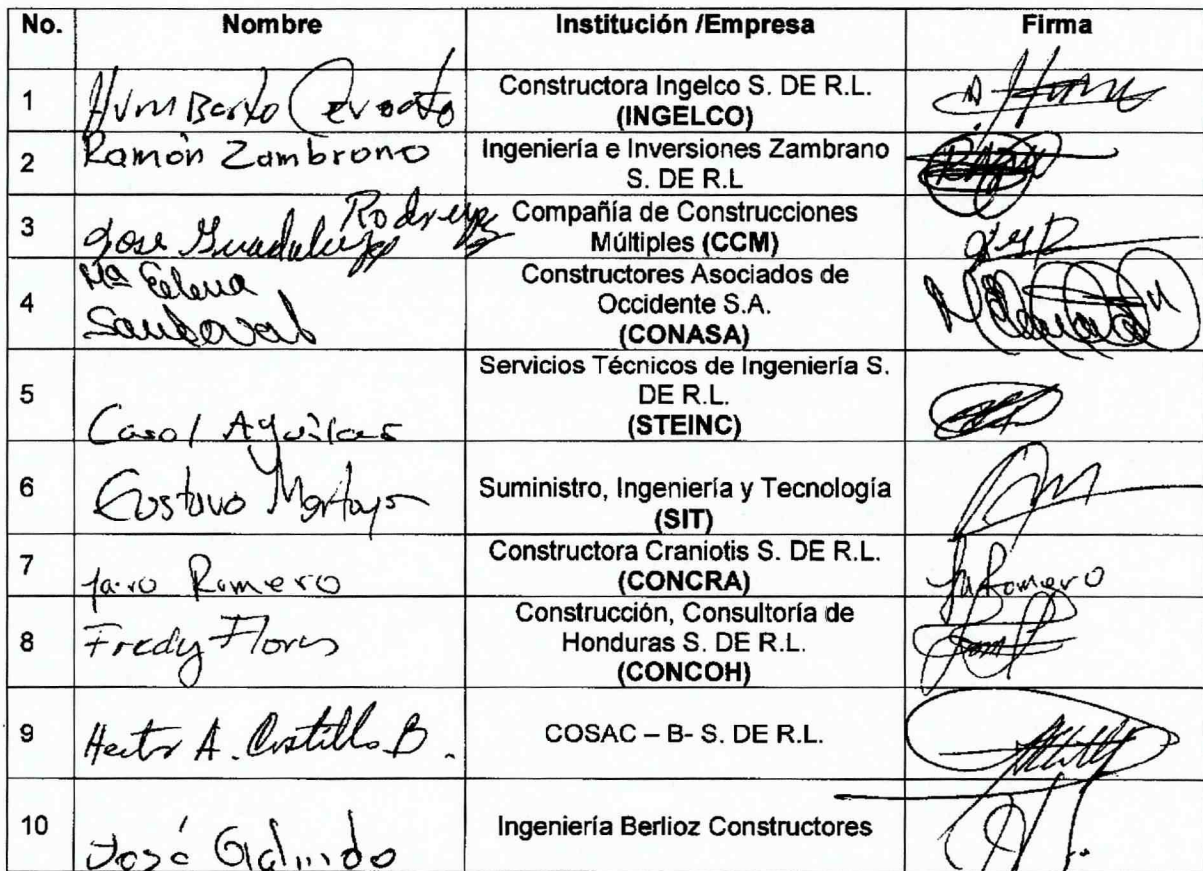 No. Nombre Institución /Empresa Firma
1 Humberto Constructora Ingelco S. DE R.L.
(INGELCO)
2 Ramón Zambrano Ingeniería e Inversiones Zambrano
S. DE R.L
3 Jose Guadalupe Rodriguez Compañía de Construcciones
Múltiples (CCM)
4 Mª Elena
Sandoval Constructores Asociados de
Occidente S.A.
(CONASA)
5 Carol Aguilar Servicios Técnicos de Ingeniería S.
DE R.L.
(STEINC)
6 Gustavo Suministro, Ingeniería y Tecnología
(SIT)
7 Romero Constructora Craniotis S. DE R.L.
(CONCRA) Romero
8 Fredy Flores Construcción, Consultoría de
Honduras S. DE R.L.
(CONCOH)
9 Hector A. Castillo B. COSAC – B- S. DE R.L.
10 José Galindo Ingeniería Berlioz Constructores